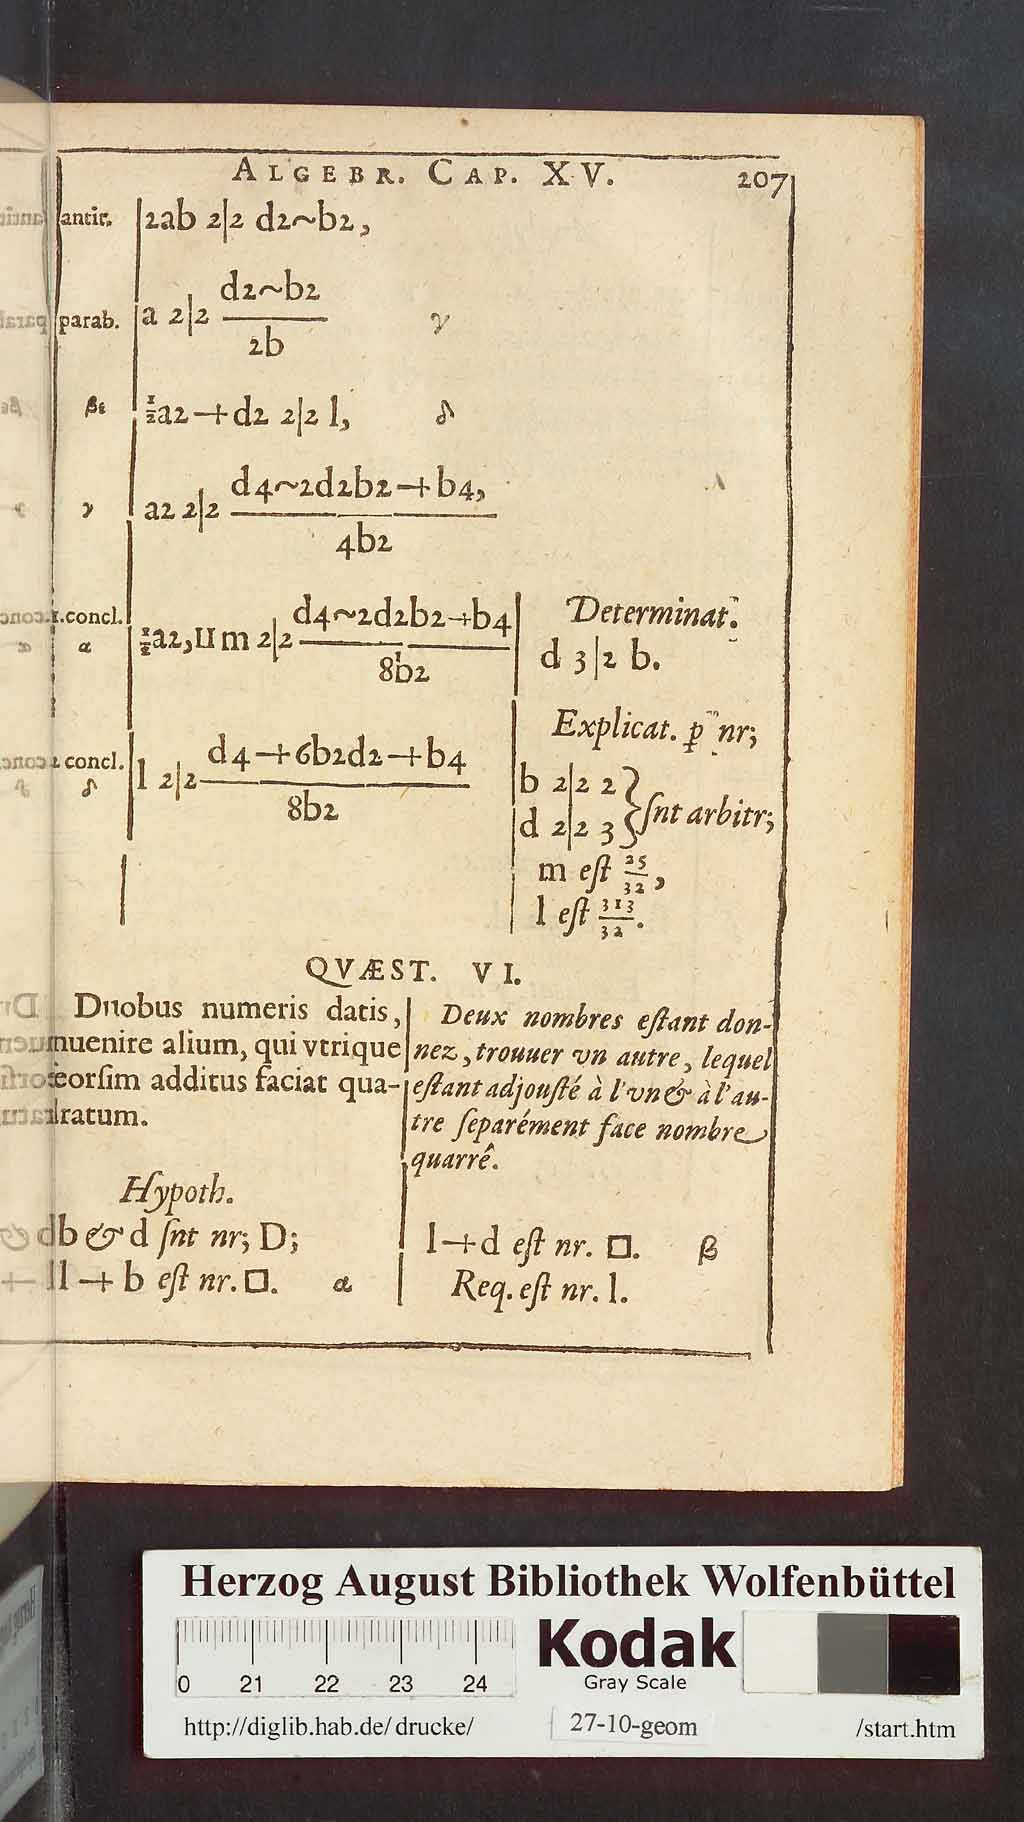 ALGEBR. CAP. XV. 207
antit. 2ab 2|2 d2~b2,
d2~b2
parab. a 2|2 ―― γ
2b
βε ½a2+d2 2|2 l, δ
d4~2d2b2+b4,
γ a2 2|2 ――
4b2
1.concl. d4~2d2b2+b4 Determinat.
α ½a2,IIm 2|2 ―― d 3|2 b.
8b2
Explicat. p nr;
2 concl. d4+6b2d2+b4 b 2|2 2
δ l 2|2 ―― ſnt arbitr;
8b2 d 2|2 3
m eſt 25/32,
l eſt 313/32.
QVÆST. VI.
Duobus numeris datis,
inuenire alium, qui vtrique
ſeorſim additus faciat qua-
dratum.
Deux nombres eſtant don-
nez, trouuer vn autre, lequel
eſtant adjouſté à l'vn & à l'au-
tre ſeparément face nombre
quarré.
Hypoth.
b & d ſnt nr; D;
l+b eſt nr. □. α
l+d eſt nr. □. β
Req. eſt nr. l.
Herzog August Bibliothek Wolfenbüttel
0 21 22 23 24
Kodak
Gray Scale
http://diglib.hab.de/drucke/ 27-10-geom /start.htm